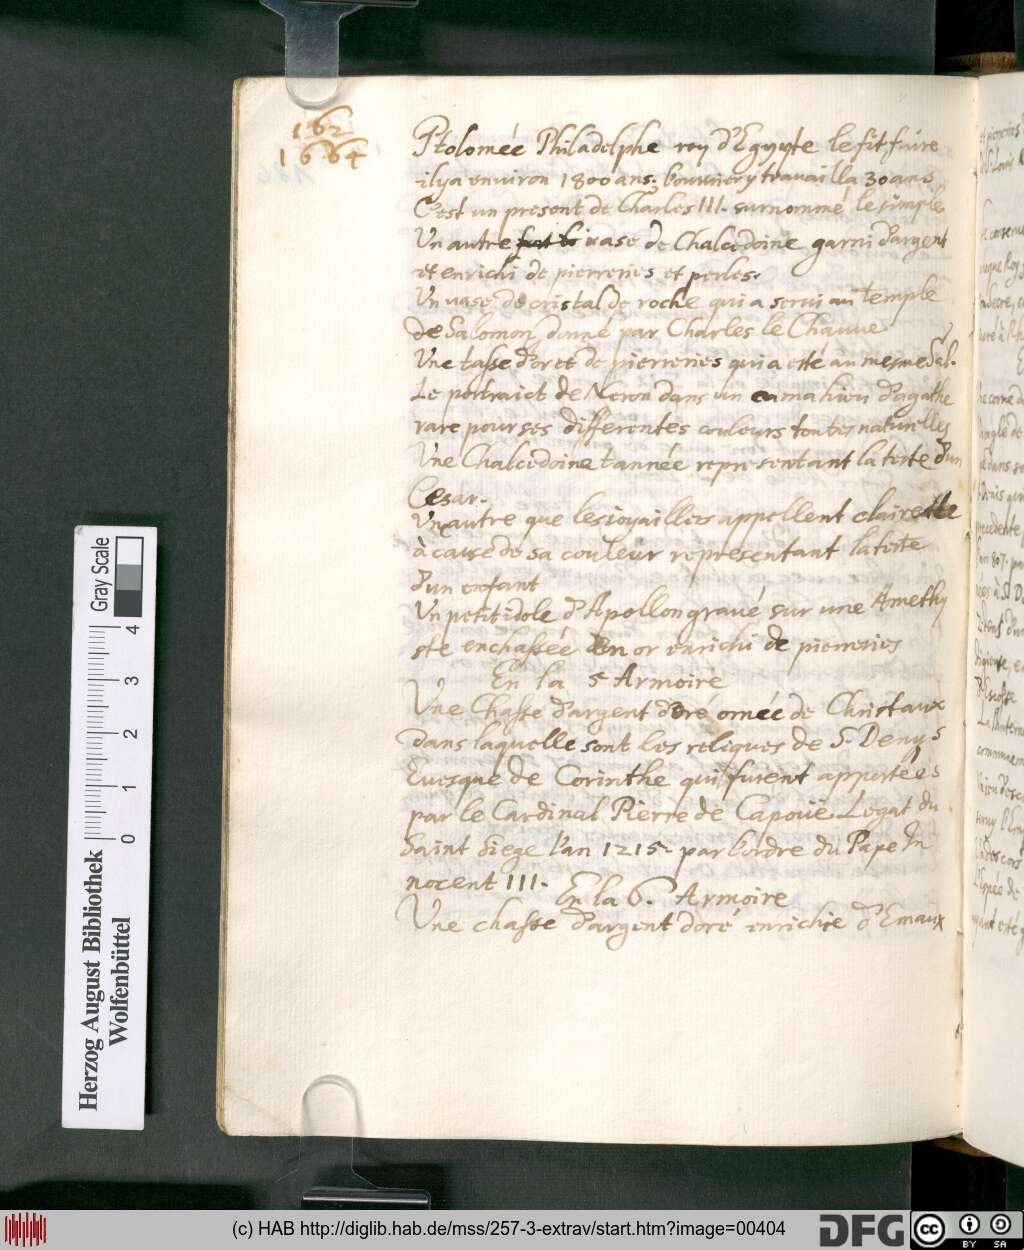 162
1664
Ptolomée Philadelphe roy d'Egypte le fit faire
il y a environ 1800 ans. l'ouvriery travailla 30 ans
C'est un present de Charles III. surnommé le simple
Un autre vase de Chalcedoine garni d'argent
et enrichi de pierreries et perles.
Un vase de cristal de roche qui a servi au temple
de Salomon donné par Charles le Chauve
Une tasse d'or et de pierreries qui a esté au mesme Sal.
Le portraict de Neron dans un camahieu d'agathe
rare pour ses differentes couleurs toutes naturelles
Une Chalcedoine tannée representant la teste d'un
Cesar.
Un autre que les joyailler appellent clairette
à cause de sa couleur representant la teste
d'un enfant
Un petit idole d'Apollon gravé sur une Amethy
ste enchassée en or enrichi de pierreries
En la 5 Armoire
Une Chasse d'argent doré ornée de Christaux
dans laquelle sont les reliques de S. Denys
Evesque de Corinthe qui furent apportées
par le Cardinal Pierre de Capoüe Legat du
Saint Siege l'an 1215. par l'ordre du Pape In
nocent III.
En la 6. Armoire
Une chasse d'argent doré enrichie d'Emaux
Herzog August Bibliothek
Wolfenbüttel
Gray Scale
0 1 2 3 4
(c) HAB http://diglib.hab.de/mss/257-3-extrav/start.htm?image=00404
DFG
cc BY SA